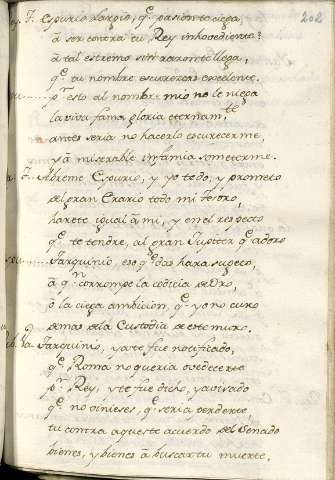 202
T. Espurio Largio, q.e pasion te ciega,
a ser contra tu Rey inhovediente?
a tal estremo sin razon te llega,
q.e tu nombre escureces excelente.
p.r esto al nombre mio no le niega
la viva fama gloria eternam.te
antes seria no hacerlo escurecerme,
y a miserable infamia someterme.
T. Abreme Espurio, y yo te do, y prometo
del gran Erario todo mi Tesoro,
harete igual a mi, y en el respecto
q.e te tendre, al gran Jupiter q.e adoro
Tarquinio, eso q.e das hara sugeto,
a q.n corrompe la codicia de Oro,
o la ciega ambicion, q.e yo no curo
de mas de la Custodia de este muro.
Tarquinio, ya te fue notificado,
q.e Roma no queria ovedecerte
p.r Rey, y te fue dicho, y avisado
q.e no vinieses, q.e seria perderte
tu contra aqueste acuerdo del Senado
bienes, y bienes a buscar tu muerte,